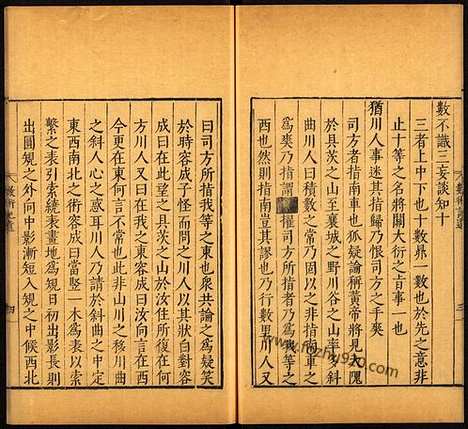 數不識三妄談知十
三者上中下也十數㒳 數也於先之意非
止十等之名將關大衍之旨事一也
猶川人事迷其指歸乃恨司方之手爽
司方者指南車也狐疑論稱黃帝將見大隗
於具茨之山至襄城之野川谷之山多斜
曲川人曰積數之常乃固以之非指南車之
爲爽乃指謂 催司方所以乃爲我等之
西也然則指南豈其謬也乃行數里川人又
曰司方所指我等之東也衆共論之爲疑笑
於時容成子怪而問之川人以其狀白對容
成曰在此望之具茨之山於汝住所復在何
方川人又曰在我之東容成曰汝向言在西
今更在東何言不一也此非山川之移川曲
之斜人心之惑耳川人乃請於斜曲之中定
東西南北之術容成曰當竪一木爲表以索
繫之表引索繞表畫地爲規日初出影長則
出圓規之外向中影漸短入規之中候西北
數術記遺
四